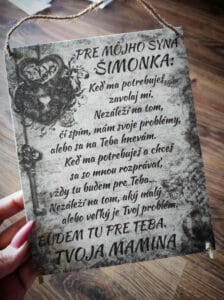 PRE MÔJHO SYNA
ŠIMONKA:
Keď ma potrebuješ,
zavolaj mi.
Nezáleží na tom,
či spím, mám svoje problémy,
alebo sa na Teba hnevám.
Keď ma potrebuješ a chceš
sa so mnou rozprávať,
vždy tu budem pre Teba..
Nezáleží na tom, aký malý
alebo veľký je Tvoj problém,
BUDEM TU PRE TEBA.
TVOJA MAMINA